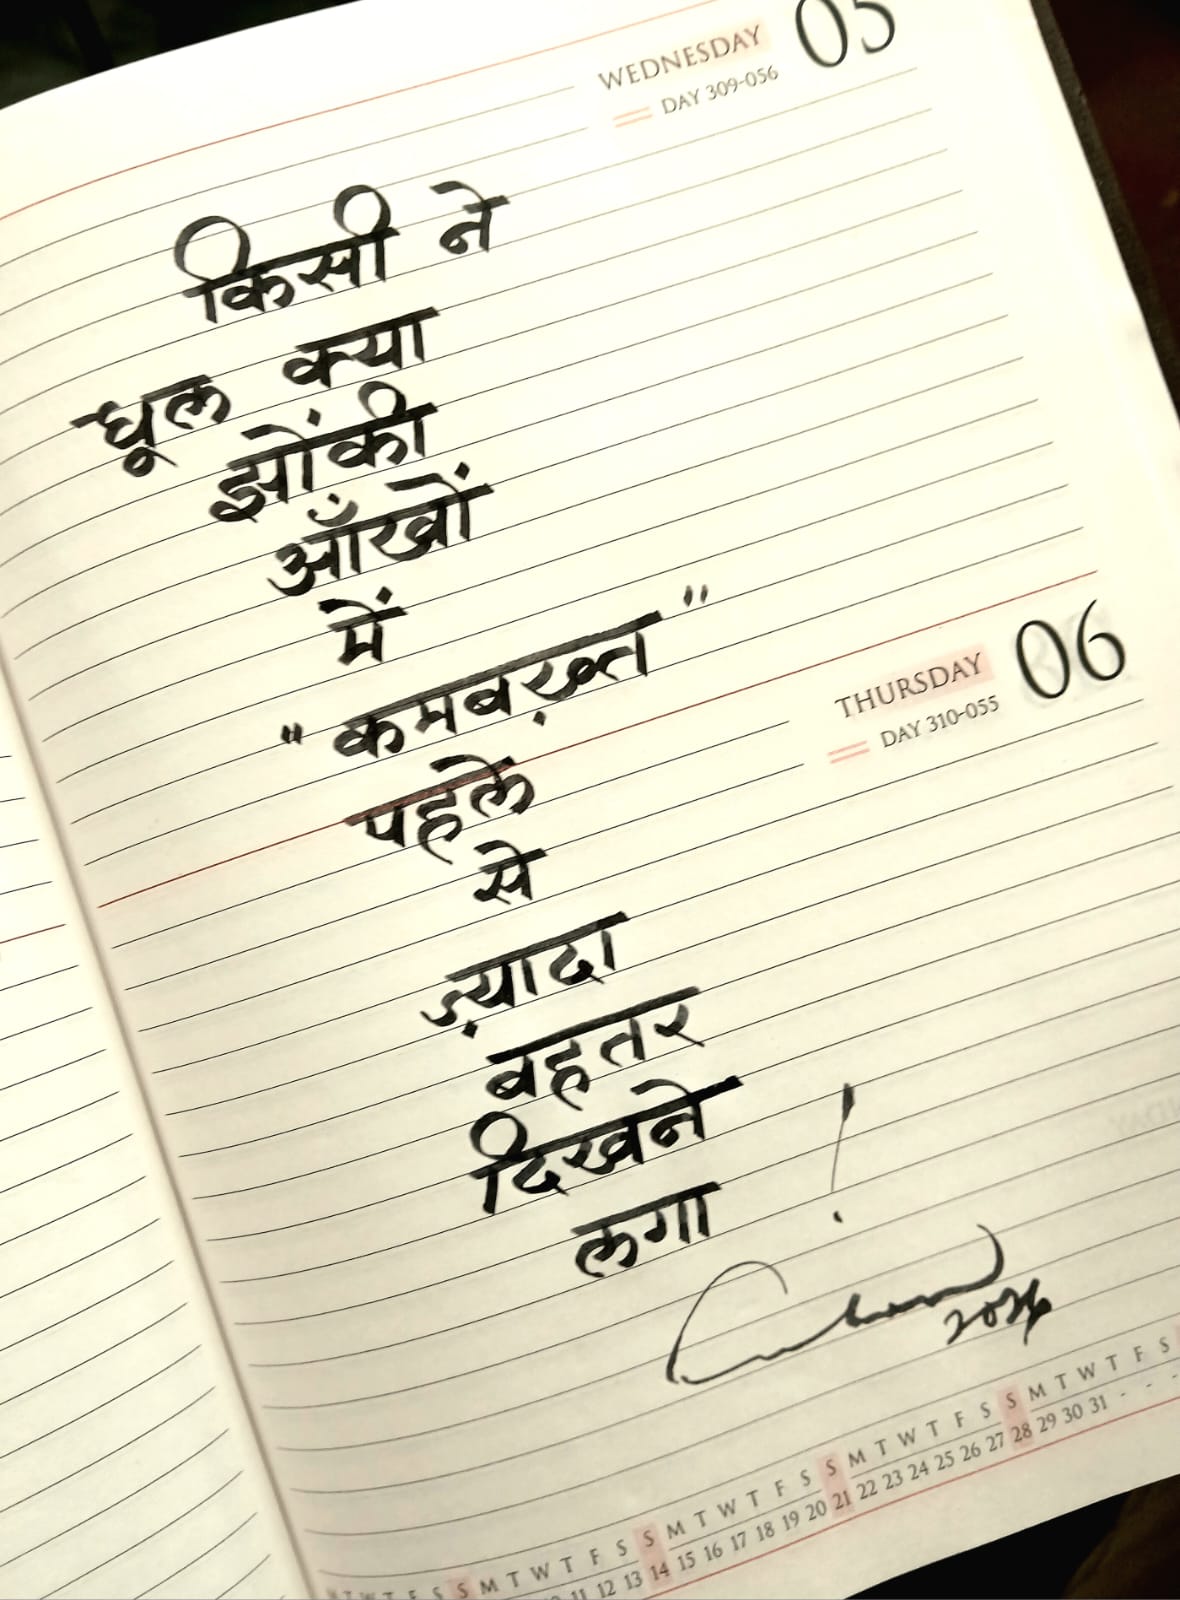 WEDNESDAY 05
DAY 309-056
किसी ने
धूल क्या
झोंकी
आँखों
में
"कमबख़्त"
पहले
से
ज़्यादा
बहतर
दिखने
लगा !
THURSDAY 06
DAY 310-055
2026
S M T W T F S S M T W T F S S M T W T F S S M T W T F S
11 12 13 14 15 16 17 18 19 20 21 22 23 24 25 26 27 28 29 30 31 - - -